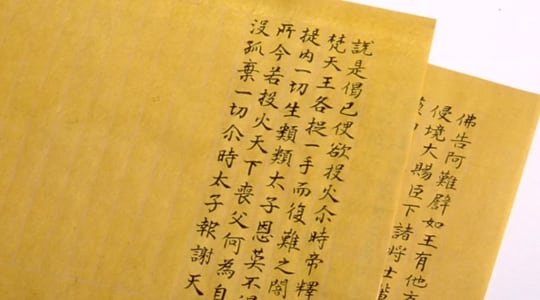 佛告阿難譬如王有他
侵境大賜臣下諸將士
說是偈已便欲投火尒時帝釋
梵天王各捉一手而復難之閻
提内一切生類類太子恩莫不
所今若投火天下喪父何為自
沒孤棄一切尒時太子報謝天